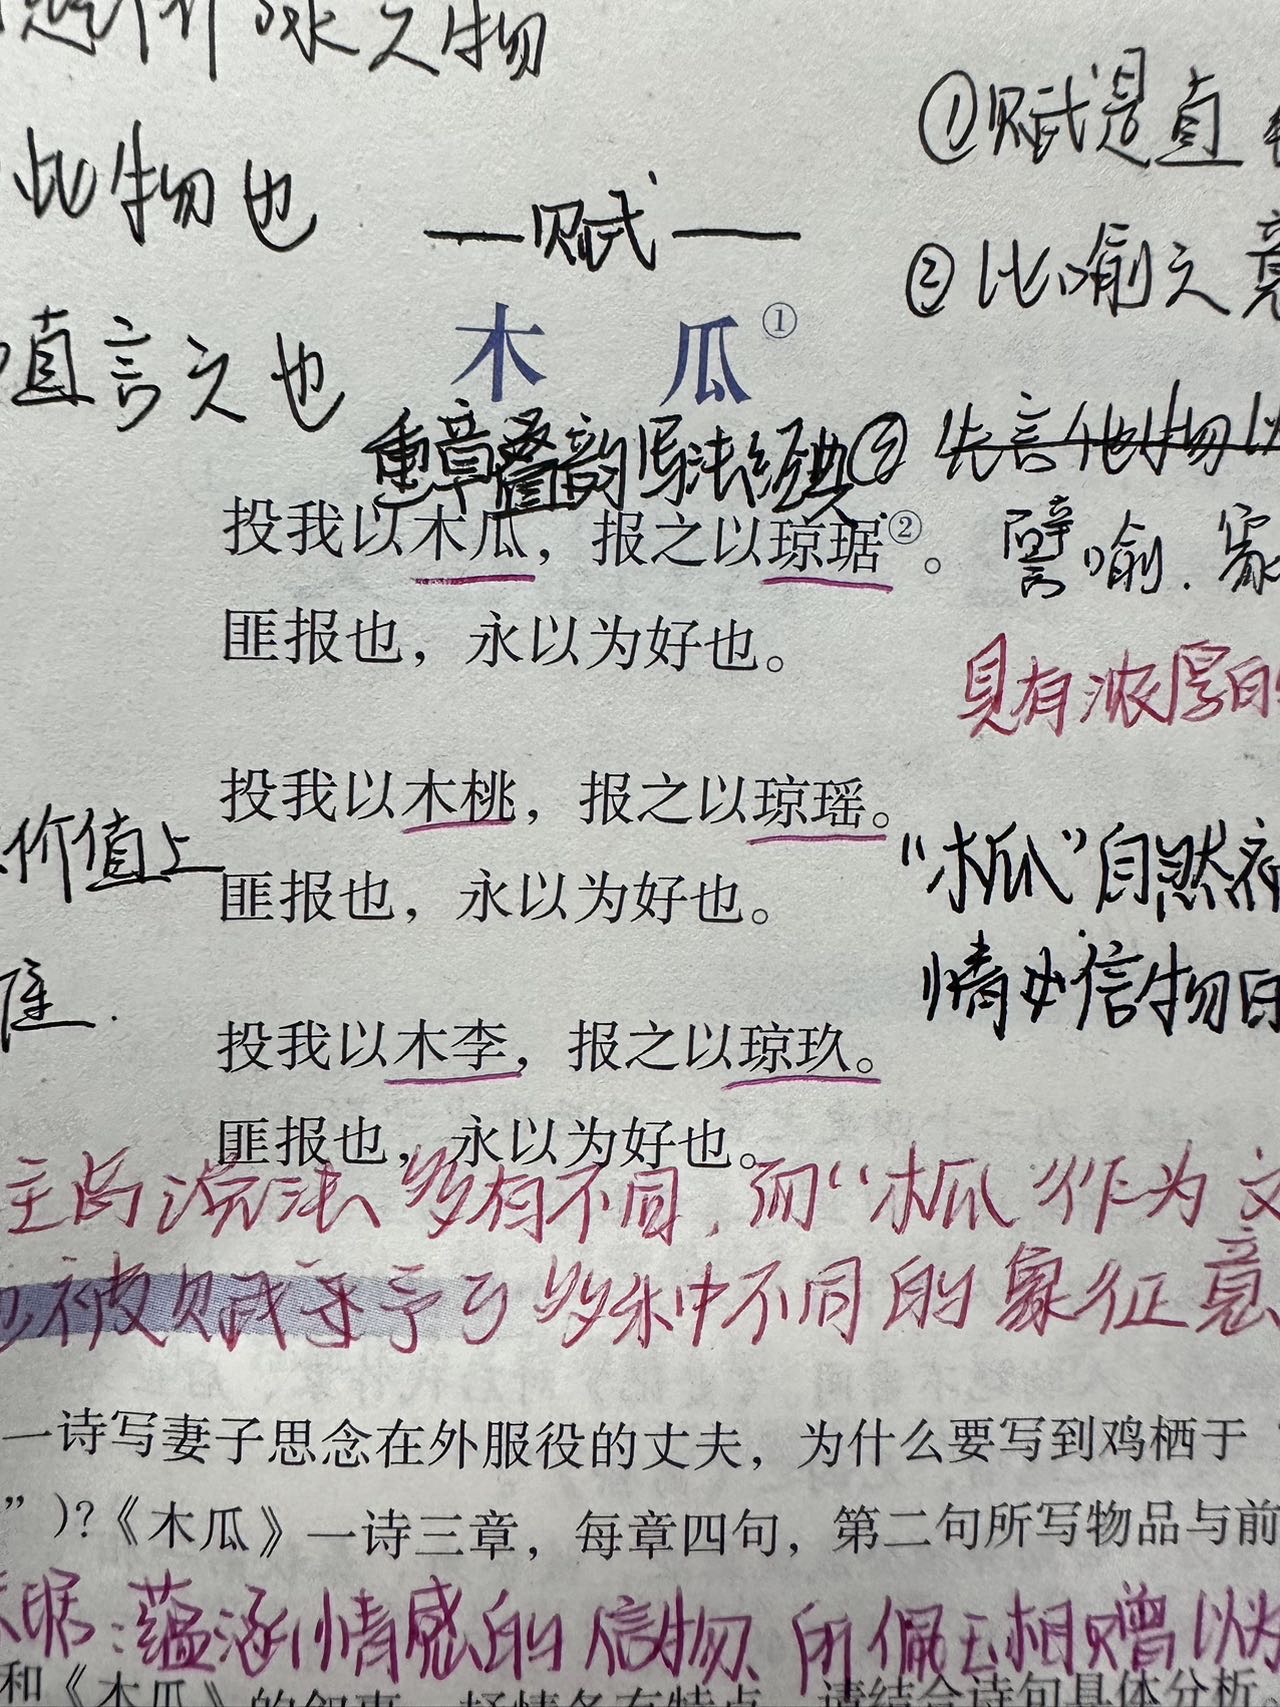 咏之物
此物也
①赋是直
—赋—
②比喻之意
木 瓜①
直言之也
重章叠韵写法经典
③先言他物以
投我以木瓜，报之以琼琚②。
譬喻.象
匪报也，永以为好也。
具有浓厚的
投我以木桃，报之以琼瑶。
价值上
"木瓜"自然
匪报也，永以为好也。
情 信物
投我以木李，报之以琼玖。
匪报也，永以为好也。
主的说法多有不同，而"木瓜"作为文
被赋予了多种不同的象征意
一诗写妻子思念在外服役的丈夫，为什么要写到鸡栖于
”)?《木瓜》一诗三章，每章四句，第二句所写物品与前
琚:蕴涵情感的信物、所佩玉相赠以为
和《木瓜》的叙事、抒情各有特点，请结合诗句具体分析。